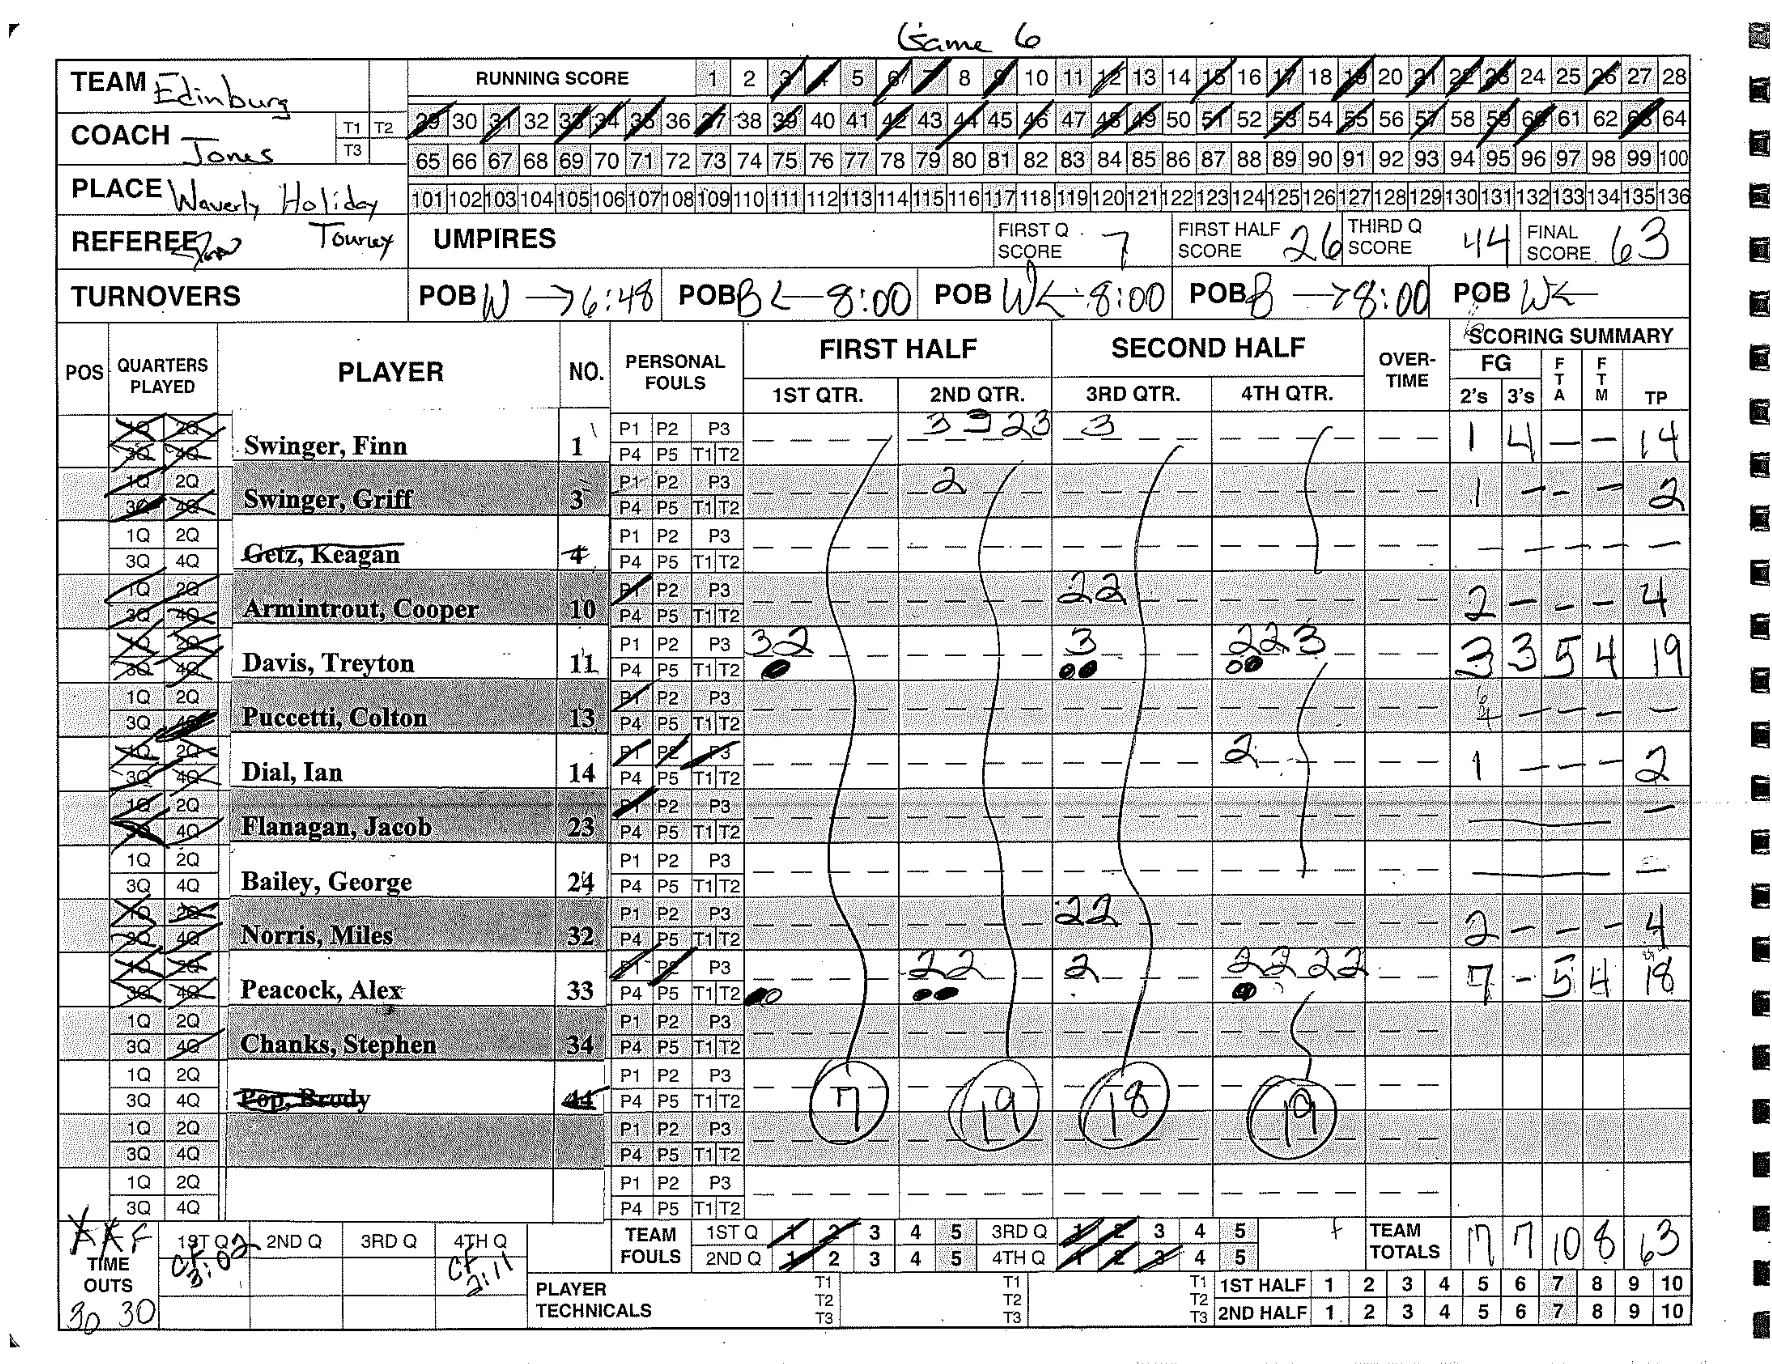 Game 6
TEAM Edinburg
RUNNING SCORE 1 2 3 4 5 6 7 8 9 10 11 12 13 14 15 16 17 18 19 20 21 22 23 24 25 26 27 28
29 30 31 32 33 34 35 36 37 38 39 40 41 42 43 44 45 46 47 48 49 50 51 52 53 54 55 56 57 58 59 60 61 62 63 64
COACH Jones T1 T2 T3
65 66 67 68 69 70 71 72 73 74 75 76 77 78 79 80 81 82 83 84 85 86 87 88 89 90 91 92 93 94 95 96 97 98 99 100
PLACE Waverly Holiday Tourney
101 102 103 104 105 106 107 108 109 110 111 112 113 114 115 116 117 118 119 120 121 122 123 124 125 126 127 128 129 130 131 132 133 134 135 136
REFEREE UMPIRES FIRST Q SCORE 7 FIRST HALF SCORE 26 THIRD Q SCORE 44 FINAL SCORE 63
TURNOVERS POB W → 6:48 POB B ← 8:00 POB W ← 8:00 POB B → 8:00 POB W ←
POS QUARTERS PLAYED PLAYER NO. PERSONAL FOULS FIRST HALF SECOND HALF OVER-TIME SCORING SUMMARY
1ST QTR. 2ND QTR. 3RD QTR. 4TH QTR. FG 2's 3's FTA FTM TP
1Q 2Q Swinger, Finn 1 P1 P2 P3 3 3 2 3 3 1 4 - - 14
3Q 4Q P4 P5 T1 T2
1Q 2Q Swinger, Griff 3 P1 P2 P3 2 1 - - - 2
3Q 4Q P4 P5 T1 T2
1Q 2Q Getz, Keagan 4 P1 P2 P3 - - - - -
3Q 4Q P4 P5 T1 T2
1Q 2Q Armintrout, Cooper 10 P1 P2 P3 2 2 2 - - - 4
3Q 4Q P4 P5 T1 T2
1Q 2Q Davis, Treyton 11 P1 P2 P3 3 2 3 2 2 3 3 3 5 4 19
3Q 4Q P4 P5 T1 T2
1Q 2Q Puccetti, Colton 13 P1 P2 P3 - - - -
3Q 4Q P4 P5 T1 T2
1Q 2Q Dial, Ian 14 P1 P2 P3 2 1 - - - 2
3Q 4Q P4 P5 T1 T2
1Q 2Q Flanagan, Jacob 23 P1 P2 P3 -
3Q 4Q P4 P5 T1 T2
1Q 2Q Bailey, George 24 P1 P2 P3 -
3Q 4Q P4 P5 T1 T2
1Q 2Q Norris, Miles 32 P1 P2 P3 2 2 2 - - - 4
3Q 4Q P4 P5 T1 T2
1Q 2Q Peacock, Alex 33 P1 P2 P3 2 2 2 2 2 2 2 7 - 5 4 18
3Q 4Q P4 P5 T1 T2
1Q 2Q Chanks, Stephen 34 P1 P2 P3
3Q 4Q P4 P5 T1 T2
1Q 2Q Pop, Brody 44 P1 P2 P3 7 19 18 19
3Q 4Q P4 P5 T1 T2
1Q 2Q P1 P2 P3
3Q 4Q P4 P5 T1 T2
1Q 2Q P1 P2 P3
3Q 4Q P4 P5 T1 T2
F TIME OUTS 30 30
1ST Q CF 3:02 2ND Q 3RD Q 4TH Q CF 2:11
TEAM FOULS 1ST Q 1 2 3 4 5 3RD Q 1 2 3 4 5
2ND Q 1 2 3 4 5 4TH Q 1 2 3 4 5
TEAM TOTALS 17 7 10 8 63
PLAYER TECHNICALS T1 T2 T3 T1 T2 T3 T1 T2 T3
1ST HALF 1 2 3 4 5 6 7 8 9 10
2ND HALF 1 2 3 4 5 6 7 8 9 10